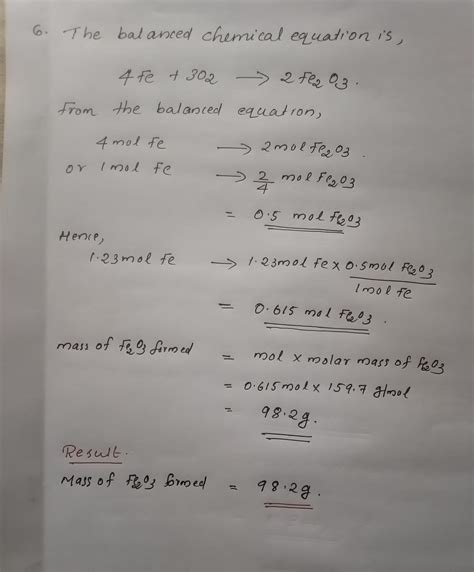 6. The balanced chemical equation is,
4Fe + 3O2 → 2Fe2O3.
From the balanced equation,
4 mol Fe → 2 mol Fe2O3.
or 1 mol Fe → 2/4 mol Fe2O3
= 0.5 mol Fe2O3
Hence,
1.23 mol Fe → 1.23 mol Fe x 0.5 mol Fe2O3 / 1 mol Fe
= 0.615 mol Fe2O3.
mass of Fe2O3 formed = mol x molar mass of Fe2O3
= 0.615 mol x 159.7 g/mol
= 98.2g.
Result.
Mass of Fe2O3 formed = 98.2g.